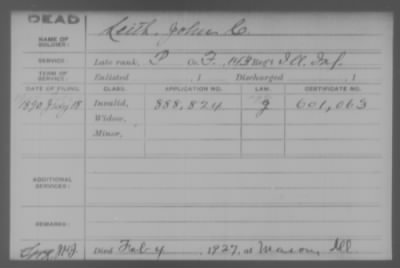 DEAD
NAME OF SOLDIER: Keith, John C.
SERVICE: Late rank, P Co. F, Reg't Ill. Inf.
TERM OF SERVICE: Enlisted , 1 Discharged , 1
DATE OF FILING. CLASS. APPLICATION NO. LAW. CERTIFICATE NO.
1890, July 18 Invalid, 888,824 g 601,063
Widow,
Minor,
ADDITIONAL SERVICES:
REMARKS:
Died Feb 4, 1927, at Mason, Ill.